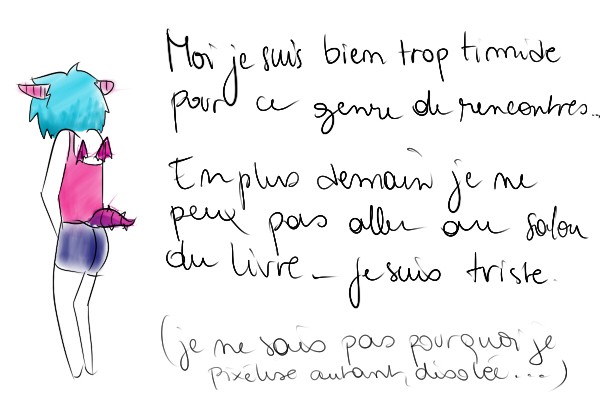 Moi je suis bien trop timide
pour ce genre de rencontres...
En plus demain je ne
peux pas aller au salon
du livre_ je suis triste.
(je ne sais pas pourquoi je
pixélise autant, désolée....)